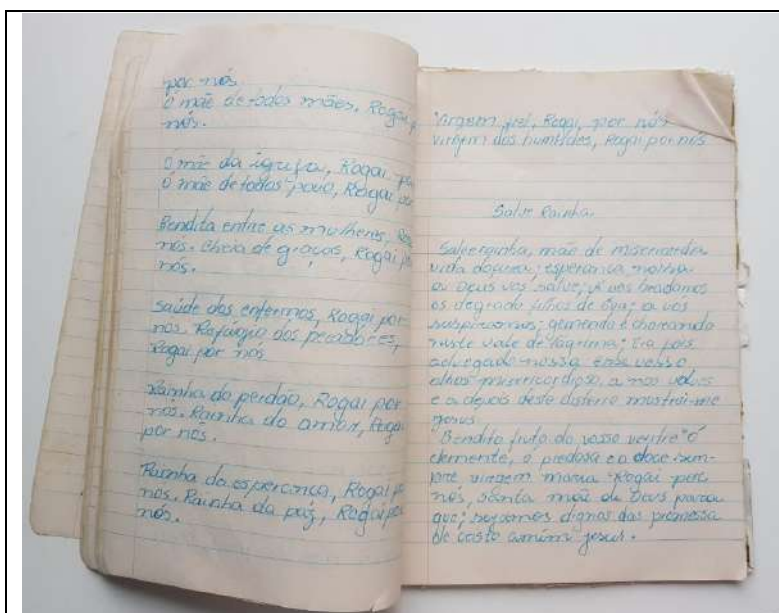 por nós.
Ó mãe de todos mães. Rogai
nós.
Ó mãe da igreja, Rogai
Ó mãe de todos povo, Rogai
Bendita entre as mulheres,
nós. Cheia de graças, Rogai
nós.
Saúde dos enfermos, Rogai por
nós. Refúgio dos pecadores,
Rogai por nós
Rainha do perdão, Rogai por
nós. Rainha do amor, Rogai
por nós.
Rainha da esperanca, Rogai
nos. Rainha da paz, Rogai
nós.
Virgem fiel, Rogai, por nós
virgem dos humildes, Rogai por nós
Salve Rainha
Salve rainha, mãe de misericordia
vida doçura; esperanca nossa
a Deus vos salve; á vos bradamos
os degrado filhos de Eva; a vós
suspiramos; gemendo e chorando
neste vale de lagrima; Eia pois
advogada nossa esses vosso
olhos misericordioso, a nos volvei
e a depois deste disterro mostrai-me
Jesus.
"Bendito fruto do vosso ventre" ó
clemente, ó piedosa e a doce sem-
pre virgem maria. Rogai por
nós, santa mãe de Deus para
que; sejamos dignos das promessa
de cristo amém Jesus.